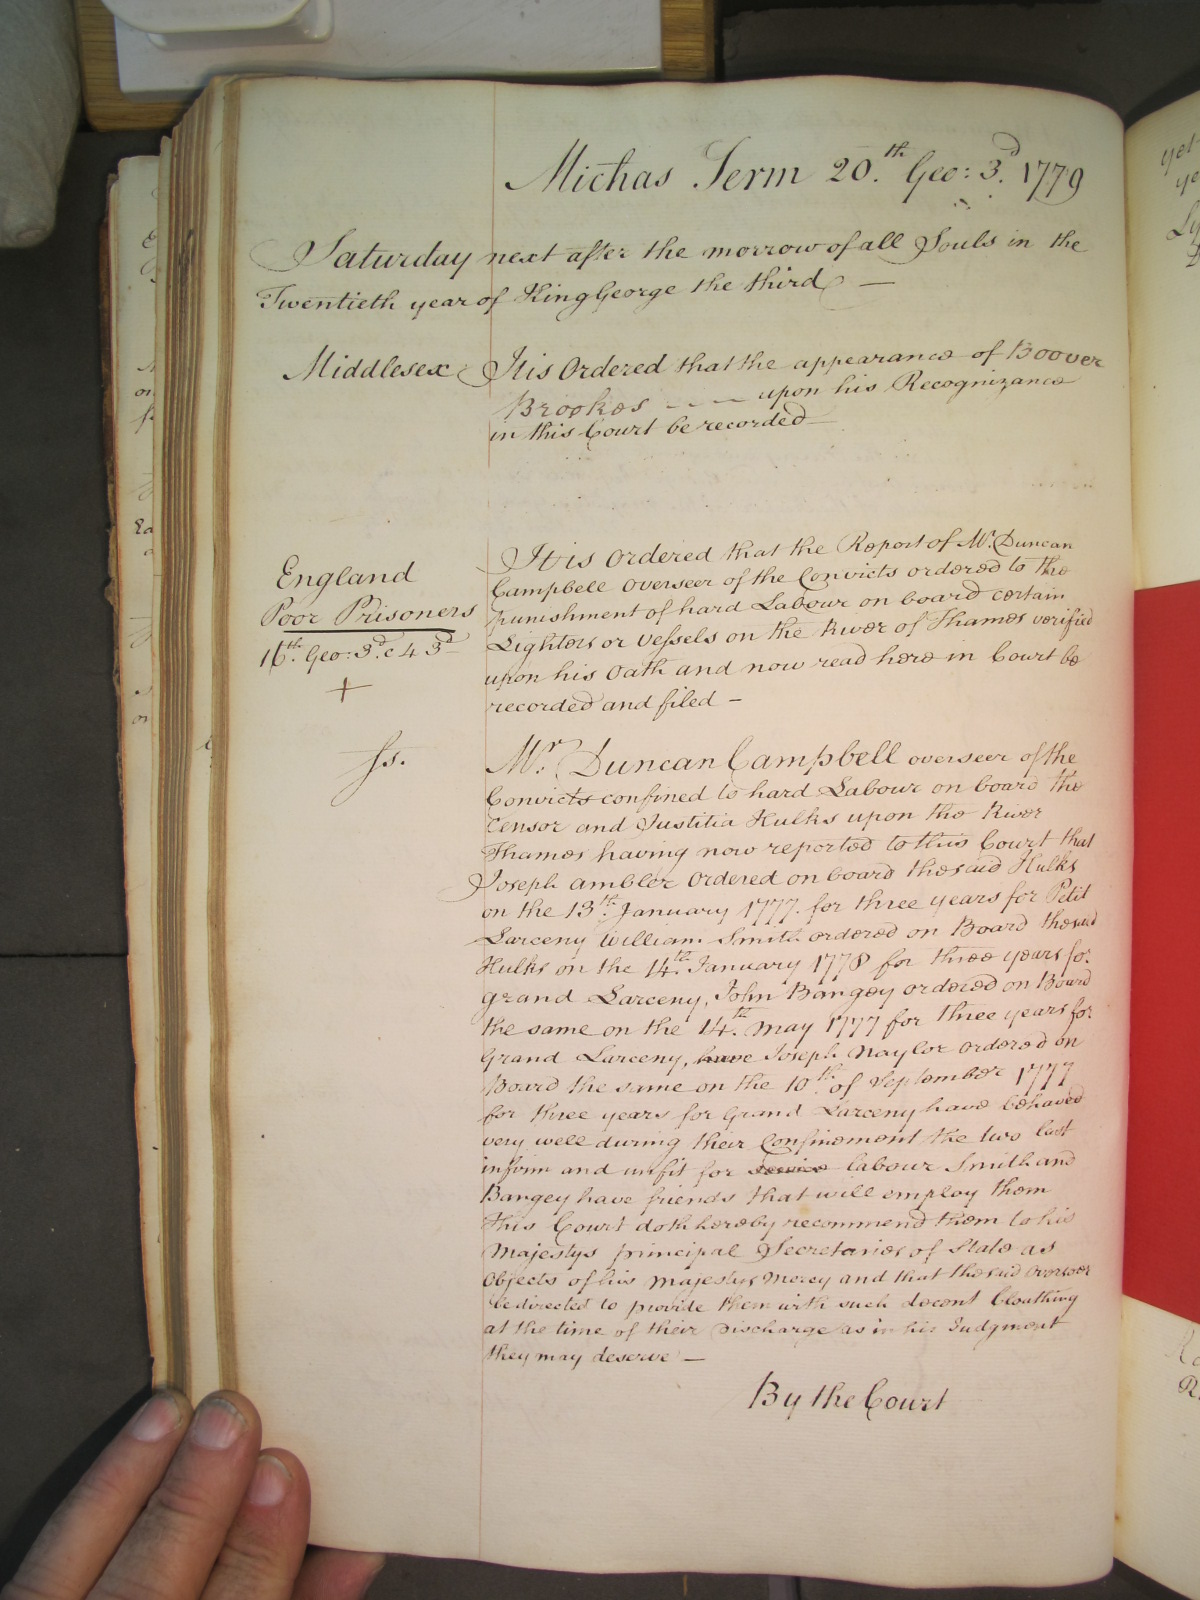 Michas Term 20.th Geo: 3.d 1779
Saturday next after the morrow of all Souls in the
Twentieth year of King George the third —
Middlesex It is Ordered that the appearance of Boover
Brookes — — — upon his Recognizance
in this Court be recorded —
England
Poor Prisoners
16th. Geo: 3.d c 43d
+
It is ordered that the Report of Mr. Duncan
Campbell overseer of the Convicts ordered to the
punishment of hard Labour on board certain
Lighters or Vessels on the River of Thames verified
upon his Oath and now read here in Court be
recorded and filed —
ss.
Mr. Duncan Campbell overseer of the
Convicts confined to hard Labour on board the
Censor and Justitia Hulks upon the River
Thames having now reported to this Court that
Joseph ambler ordered on board the said Hulks
on the 13th. January 1777. for three years for Petit
Larceny William Smith ordered on Board the said
Hulks on the 14th. January 1778 for three years for
grand Larceny, John Bangey ordered on Board
the same on the 14th. May 1777 for three years for
Grand Larceny, have Joseph Naylor ordered on
Board the same on the 10th. of September 1777
for three years for Grand Larceny have behaved
very well during their Confinement the two last
infirm and unfit for service labour Smith and
Bangey have friends that will employ them
This Court doth hereby recommend them to his
Majestys principal Secretaries of State as
Objects of his Majestys Mercy and that the said Overseer
be directed to provide them with such decent Cloathing
at the time of their Discharge as in his Judgment
they may deserve —
By the Court